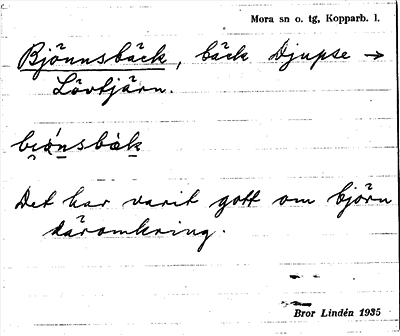 Mora sn o. tg, Kopparb. l.
Bjönnsbäck, bäck Djupse →
Lövtjärn.
bi̯ónsbàk
Det har varit gott om björn
däromkring.
Bror Lindén 1935